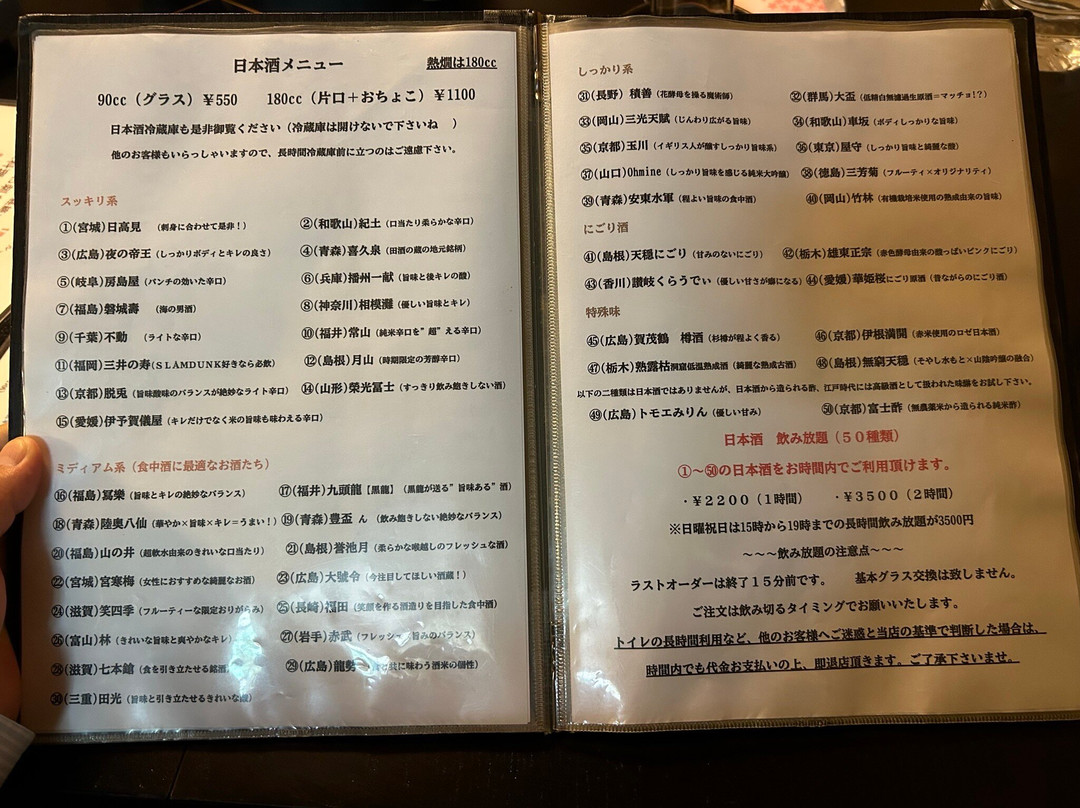 日本酒メニュー　熱燗は180cc
90cc（グラス）￥550　180cc（片口＋おちょこ）￥1100
日本酒冷蔵庫も是非御覧ください（冷蔵庫は開けないで下さいね　）
他のお客様もいらっしゃいますので、長時間冷蔵庫前に立つのはご遠慮下さい。
スッキリ系
①(宮城)日高見　（刺身に合わせて是非！）　②(和歌山)紀土（口当たり柔らかな辛口）
③(広島)夜の帝王（しっかりボディとキレの良さ）　④(青森)喜久泉（田酒の蔵の地元銘柄）
⑤(岐阜)房島屋（パンチの効いた辛口）　⑥(兵庫)播州一献（旨味と後キレの酸）
⑦(福島)磐城壽　（海の男酒）　⑧(神奈川)相模灘（優しい旨味とキレ）
⑨(千葉)不動　（ライトな辛口）　⑩(福井)常山（純米辛口を”超”える辛口）
⑪(福岡)三井の寿（ＳＬＡＭＤＵＮＫ好きなら必飲）　⑫(島根)月山（時期限定の芳醇辛口）
⑬(京都)脱兎（旨味酸味のバランスが絶妙なライト辛口）　⑭(山形)榮光冨士（すっきり飲み飽きしない酒）
⑮(愛媛)伊予賀儀屋（キレだけでなく米の旨味も味わえる辛口）
ミディアム系（食中酒に最適なお酒たち）
⑯(福島)冩樂（旨味とキレの絶妙なバランス）　⑰(福井)九頭龍【黒龍】（黒龍が送る”旨味ある”酒）
⑱(青森)陸奥八仙（華やか×旨味×キレ＝うまい！）　⑲(青森)豊盃 ん（飲み飽きしない絶妙なバランス）
⑳(福島)山の井（超軟水由来のきれいな口当たり）　㉑(島根)誉池月（柔らかな喉越しのフレッシュな酒）
㉒(宮城)宮寒梅（女性におすすめな綺麗なお酒）　㉓(広島)大號令（今注目してほしい酒蔵！）
㉔(滋賀)笑四季（フルーティーな限定おりがらみ）　㉕(長崎)福田（笑顔を作る酒造りを目指した食中酒）
㉖(富山)林（きれいな旨味と爽やかなキレ）　㉗(岩手)赤武（フレッシュ　旨みのバランス）
㉘(滋賀)七本鎗（食を引き立たせる銘酒）　㉙(広島)龍勢　に味わう酒米の個性）
㉚(三重)田光（旨味と引き立たせるきれいな酸）
しっかり系
㉛(長野) 積善（花酵母を操る魔術師）　㉜(群馬)大盃（低精白無濾過生原酒＝マッチョ！？）
㉝(岡山)三光天賦（じんわり広がる旨味）　㉞(和歌山)車坂（ボディしっかりな旨味）
㉟(京都)玉川（イギリス人が醸すしっかり旨味系）　㊱(東京)屋守（しっかり旨味と綺麗な酸）
㊲(山口)Ohmine（しっかり旨味を感じる純米大吟醸）　㊳(徳島)三芳菊（フルーティ×オリジナリティ）
㊴(青森)安東水軍（程よい旨味の食中酒）　㊵(岡山)竹林（有機栽培米使用の熟成由来の旨味）
にごり酒
㊶(島根)天穏にごり（甘みのないにごり）　㊷(栃木)雄東正宗（赤色酵母由来の酸っぱいピンクにごり）
㊸(香川)讃岐くらうでぃ（優しい甘さが癖になる）　㊹(愛媛)華姫桜にごり原酒（昔ながらのにごり酒）
特殊味
㊺(広島)賀茂鶴　樽酒（杉樽が程よく香る）　㊻(京都)伊根満開（赤米使用のロゼ日本酒）
㊼(栃木)熟露枯洞窟低温熟成酒（綺麗な熟成古酒）　㊽(島根)無窮天穏（そやし水もと×山陰吟醸の融合）
以下の二種類は日本酒ではありませんが、日本酒から造られる酢、江戸時代には高級酒として扱われた味醂をお試し下さい。
㊾(広島)トモエみりん（優しい甘み）　㊿(京都)富士酢（無農薬米から造られる純米酢）
日本酒　飲み放題（５０種類）
①～㊿の日本酒をお時間内でご利用頂けます。
・￥２２００（１時間）　・￥３５００（２時間）
※日曜祝日は15時から19時までの長時間飲み放題が3500円
～～～飲み放題の注意点～～～
ラストオーダーは終了１５分前です。　基本グラス交換は致しません。
ご注文は飲み切るタイミングでお願いいたします。
トイレの長時間利用など、他のお客様へご迷惑と当店の基準で判断した場合は、
時間内でも代金お支払いの上、即退店頂きます。ご了承下さいませ。